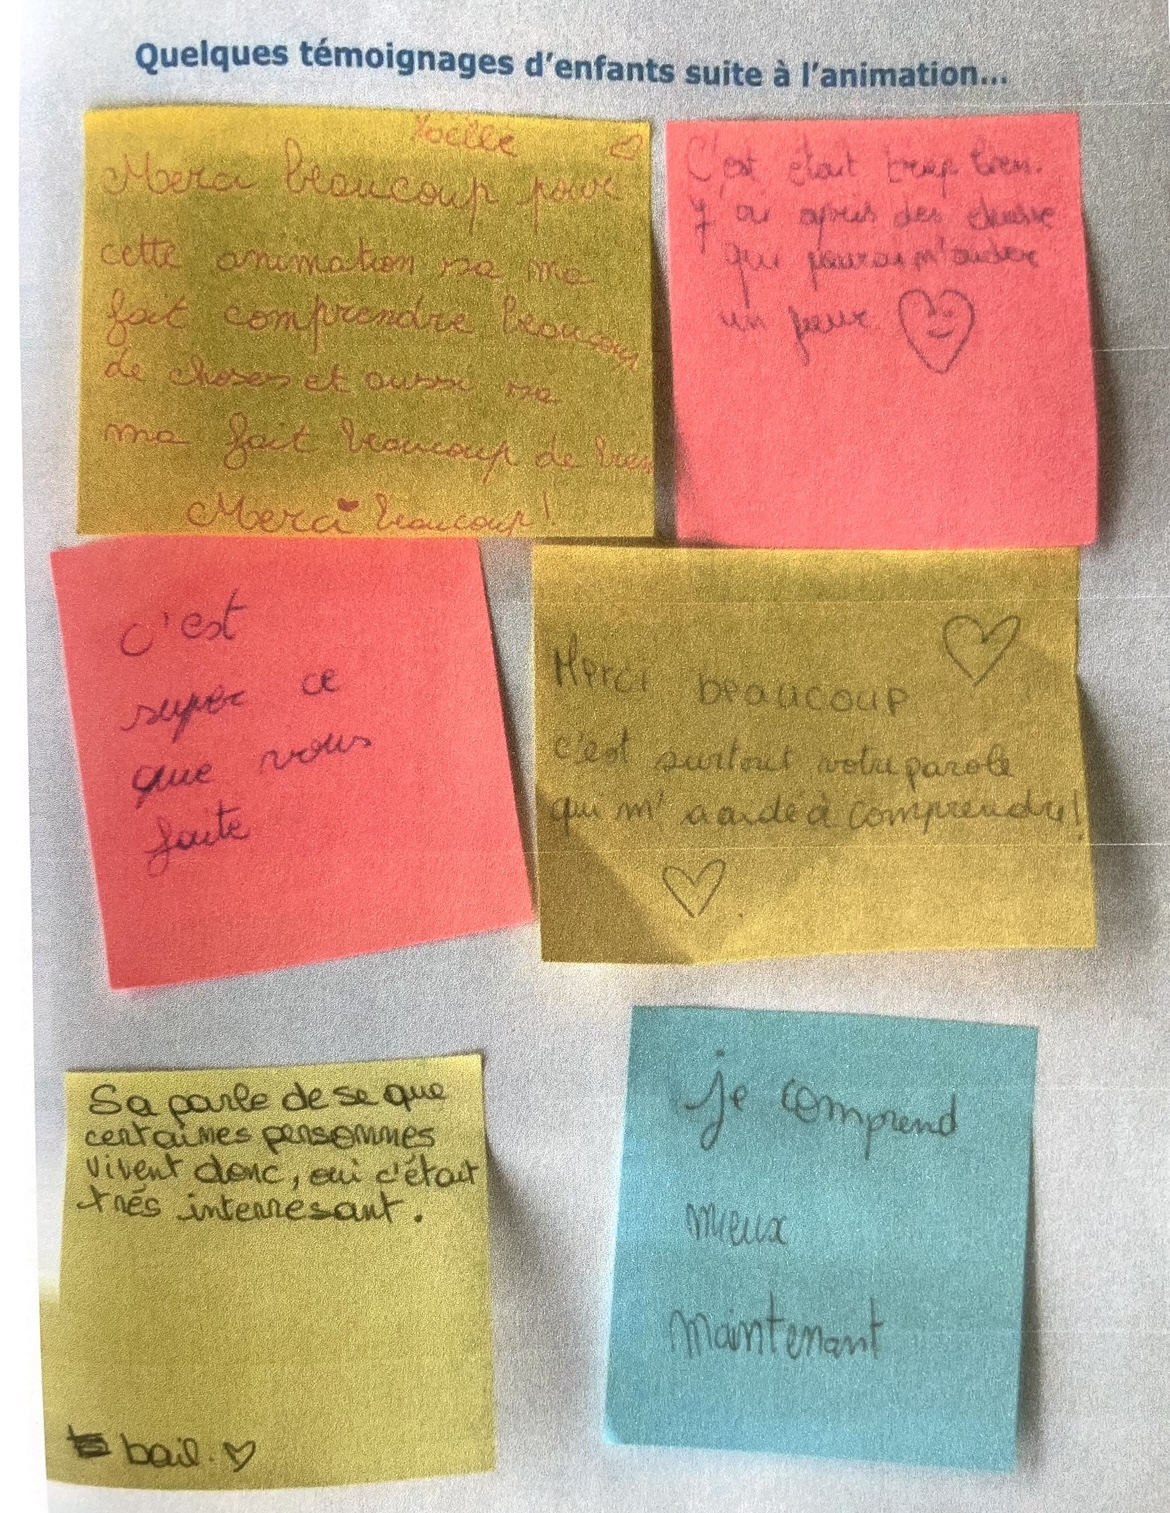 Quelques témoignages d'enfants suite à l'animation...
Merci beaucoup pour
cette animation sa ma
fait comprendre beaucoup
de choses et aussi sa
ma fait beaucoup de bien
Merci beaucoup!
C'est était trop bien.
qui pourai m'aider
un peux
C'est
super ce
que vous
faite
Merci beaucoup
c'est surtout votre parole
qui m'a aidé à comprendre!
Sa parle de se que
certaines personnes
vivent donc, oui c'était
trés interresant.
bail.
je comprend
mieux
maintenant